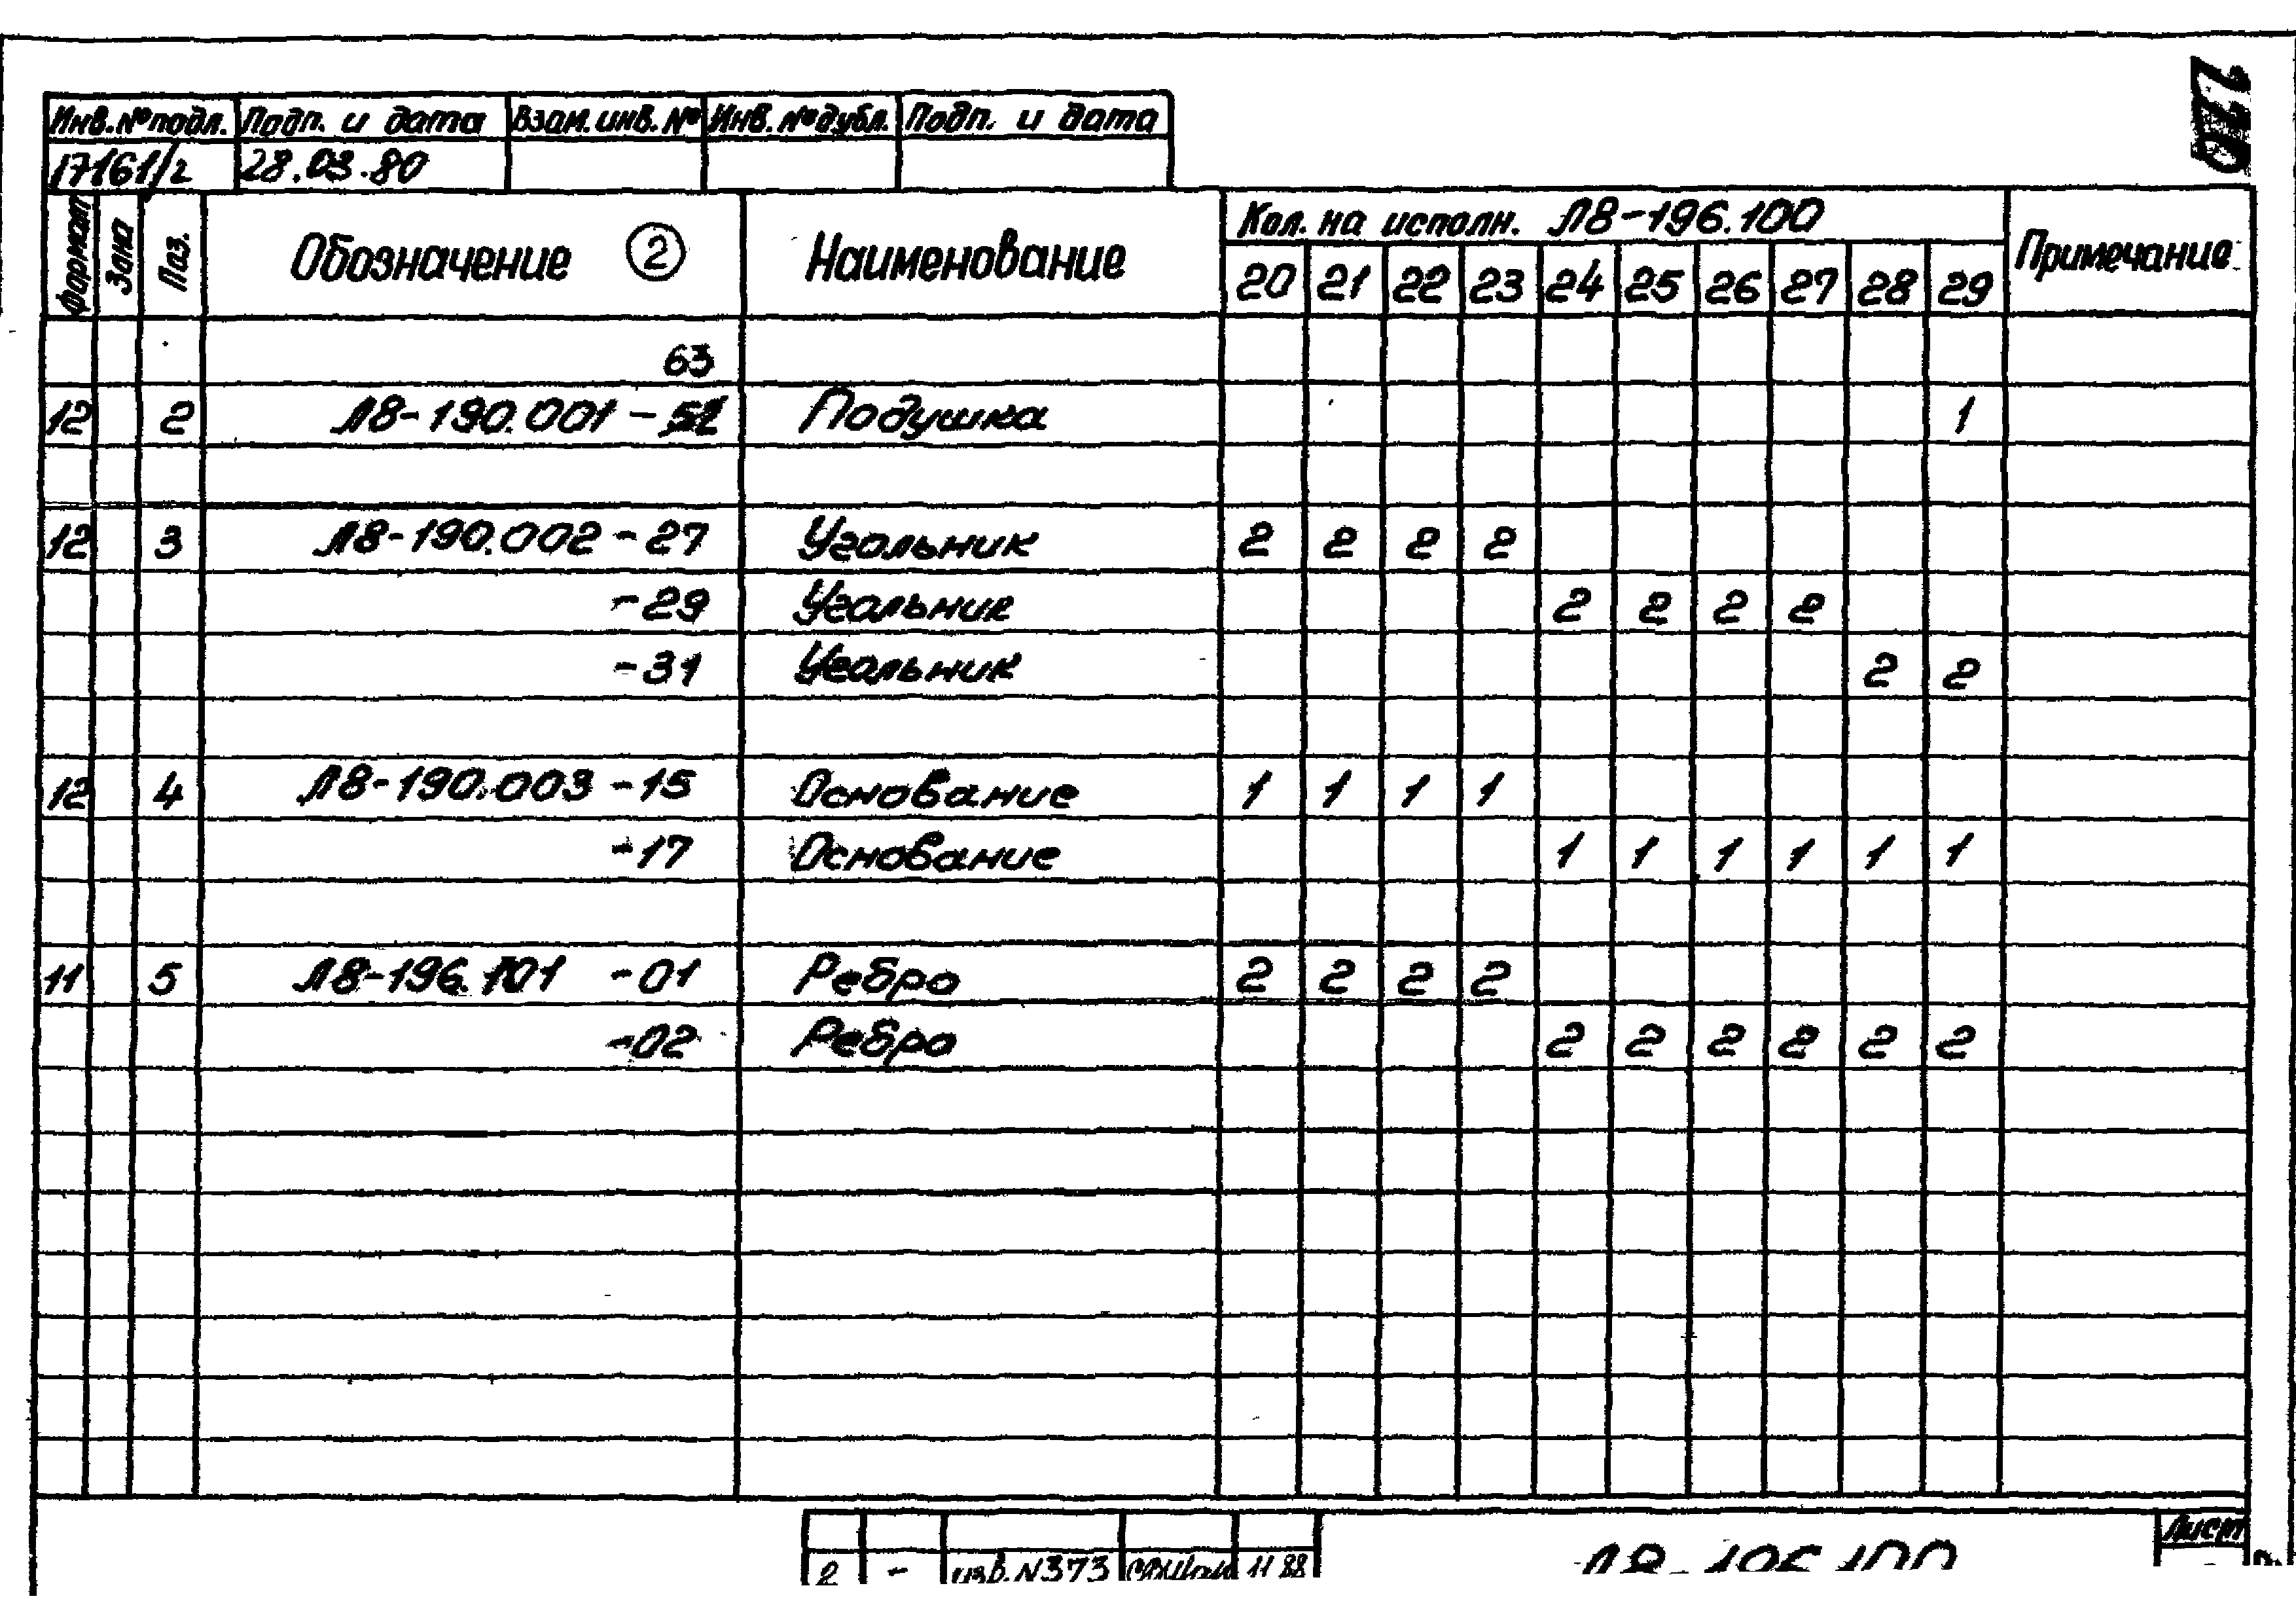 110
Инв.№подл. Подп. и дата Взам.инв.№ Инв.№дубл. Подп. и дата
17161/2 28.03.80
Формат Зона Поз. Обозначение 2 Наименование Кол. на исполн. Л8-196.100 Примечание
20 21 22 23 24 25 26 27 28 29
63
12 2 Л8-190.001-52 Подушка 1
12 3 Л8-190.002-27 Угольник 2 2 2 2
-29 Угольник 2 2 2 2
-31 Угольник 2 2
12 4 Л8-190.003-15 Основание 1 1 1 1
-17 Основание 1 1 1 1 1 1
11 5 Л8-196.101 -01 Ребро 2 2 2 2
-02 Ребро 2 2 2 2 2 2
Лист
2 - изв.N373 11 88 Л8-196.100